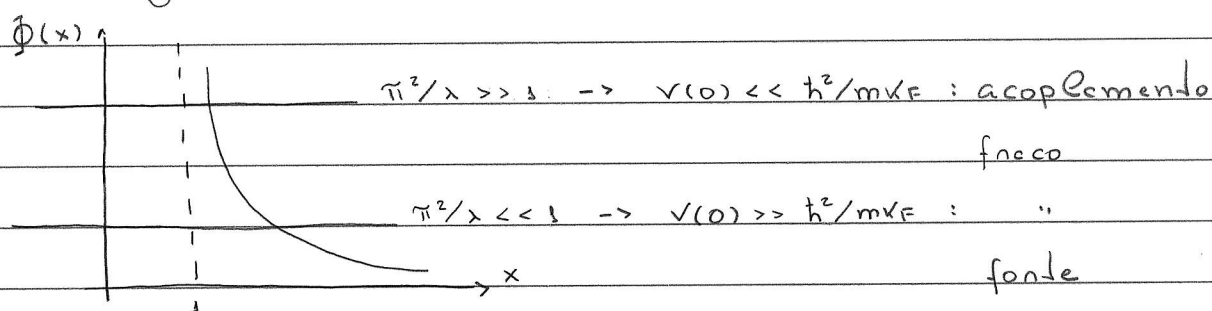 Φ(x)
π²/λ >> 1 -> V(0) << ħ²/mKF : acoplamento
fraco
π²/λ << 1 -> V(0) >> ħ²/mKF : "
forte
x
1